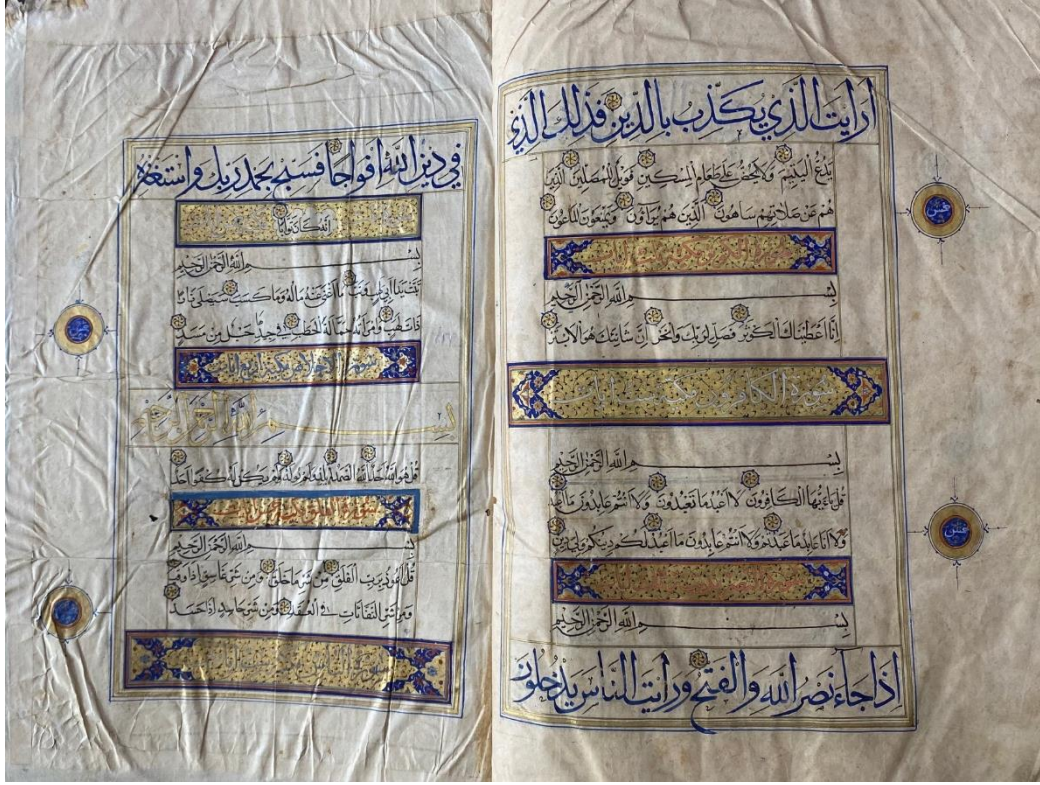 اَرَاَيْتَ الَّذي يُكَذِّبُ بِالدّينِ فَذلِكَ الَّذي
يَدُعُّ الْيَتيمَ وَلَا يَحُضُّ عَلى طَعَامِ الْمِسْكينِ فَوَيْلٌ لِلْمُصَلّينَ الَّذينَ
هُمْ عَنْ صَلَاتِهِمْ سَاهُونَ الَّذينَ هُمْ يُرَاؤُنَ وَيَمْنَعُونَ الْمَاعُونَ
خمس
بِسْمِ اللهِ الرَّحْمنِ الرَّحيمِ
اِنَّا اَعْطَيْنَاكَ الْكَوْثَرَ فَصَلِّ لِرَبِّكَ وَانْحَرْ اِنَّ شَانِئَكَ هُوَ الْاَبْتَرُ
سورة الكافرون مكية ست ايات
بِسْمِ اللهِ الرَّحْمنِ الرَّحيمِ
قُلْ يَاءَيُّهَا الْكَافِرُونَ لَا اَعْبُدُ مَا تَعْبُدُونَ وَلَا اَنْتُمْ عَابِدُونَ مَا اَعْبُدُ
وَلَا اَنَا عَابِدٌ مَا عَبَدْتُمْ وَلَا اَنْتُمْ عَابِدُونَ مَا اَعْبُدُ لَكُمْ دِينُكُمْ وَلِيَ دِينِ
خمس
بِسْمِ اللهِ الرَّحْمنِ الرَّحيمِ
اِذَا جَاءَ نَصْرُ اللهِ وَالْفَتْحُ وَرَاَيْتَ النَّاسَ يَدْخُلُونَ
في دينِ اللهِ اَفْوَاجًا فَسَبِّحْ بِحَمْدِ رَبِّكَ وَاسْتَغْفِرْهُ
اِنَّهُ كَانَ تَوَّابًا
بِسْمِ اللهِ الرَّحْمنِ الرَّحيمِ
تَبَّتْ يَدَا اَبي لَهَبٍ وَتَبَّ مَا اَغْنى عَنْهُ مَالُهُ وَمَا كَسَبَ سَيَصْلى نَارًا
خمس
ذَاتَ لَهَبٍ وَامْرَاَتُهُ حَمَّالَةَ الْحَطَبِ في جيدِهَا حَبْلٌ مِنْ مَسَدٍ
سورة الاخلاص مكية اربع ايات
بسم الله الرحمن الرحيم
قُلْ هُوَ اللهُ اَحَدٌ اَللهُ الصَّمَدُ لَمْ يَلِدْ وَلَمْ يُولَدْ وَلَمْ يَكُنْ لَهُ كُفُوًا اَحَدٌ
سورة الفلق خمس ايات
بِسْمِ اللهِ الرَّحْمنِ الرَّحيمِ
قُلْ اَعُوذُ بِرَبِّ الْفَلَقِ مِنْ شَرِّ مَا خَلَقَ وَمِنْ شَرِّ غَاسِقٍ اِذَا وَقَبَ
وَمِنْ شَرِّ النَّفَّاثَاتِ فِي الْعُقَدِ وَمِنْ شَرِّ حَاسِدٍ اِذَا حَسَدَ